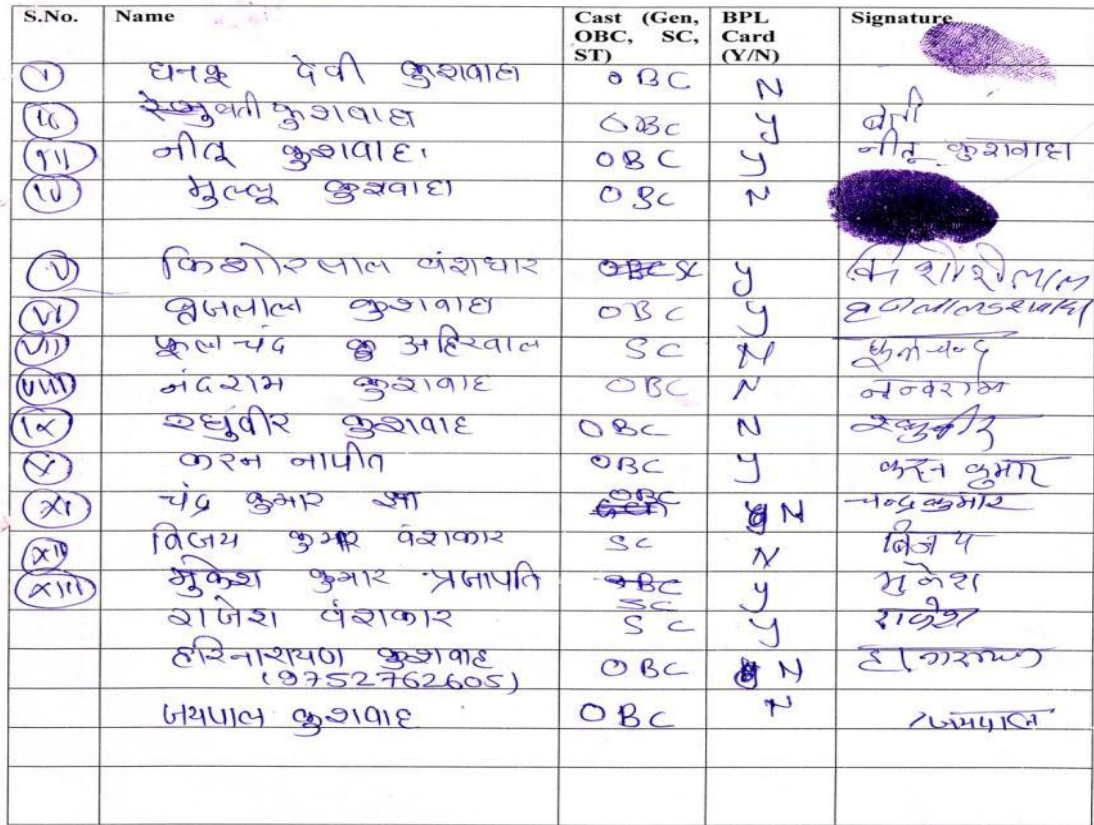 S.No. Name Cast (Gen, OBC, SC, ST) BPL Card (Y/N) Signature
(I) धनकू देवी कुशवाहा OBC N
(II) कुशवाहा OBC y बेती
(III) नीतू कुशवाहा OBC y नीतू कुशवाहा
(IV) मुल्लू कुशवाहा OBC N
(V) किशोरलाल वंशधार SC y
(VI) बृजलाल कुशवाहा OBC y
(VII) फूलचंद अहिरवाल SC N फूलचन्द
(VIII) नंदराम कुशवाह OBC N नन्दराम
(IX) रघुवीर कुशवाह OBC N रघुवीर
(X) करन नापीत OBC y करन कुमार
(XI) चंद्र कुमार झा OBC N चन्द्रकुमार
(XII) विजय कुमार वंशकार SC N बिजय
(XIII) मुकेश कुमार प्रजापति SC y मुकेश
राजेश वंशकार SC y राजेश
हरिनारायण कुशवाह OBC N
(9752762605)
जयपाल कुशवाह OBC N जयपाल